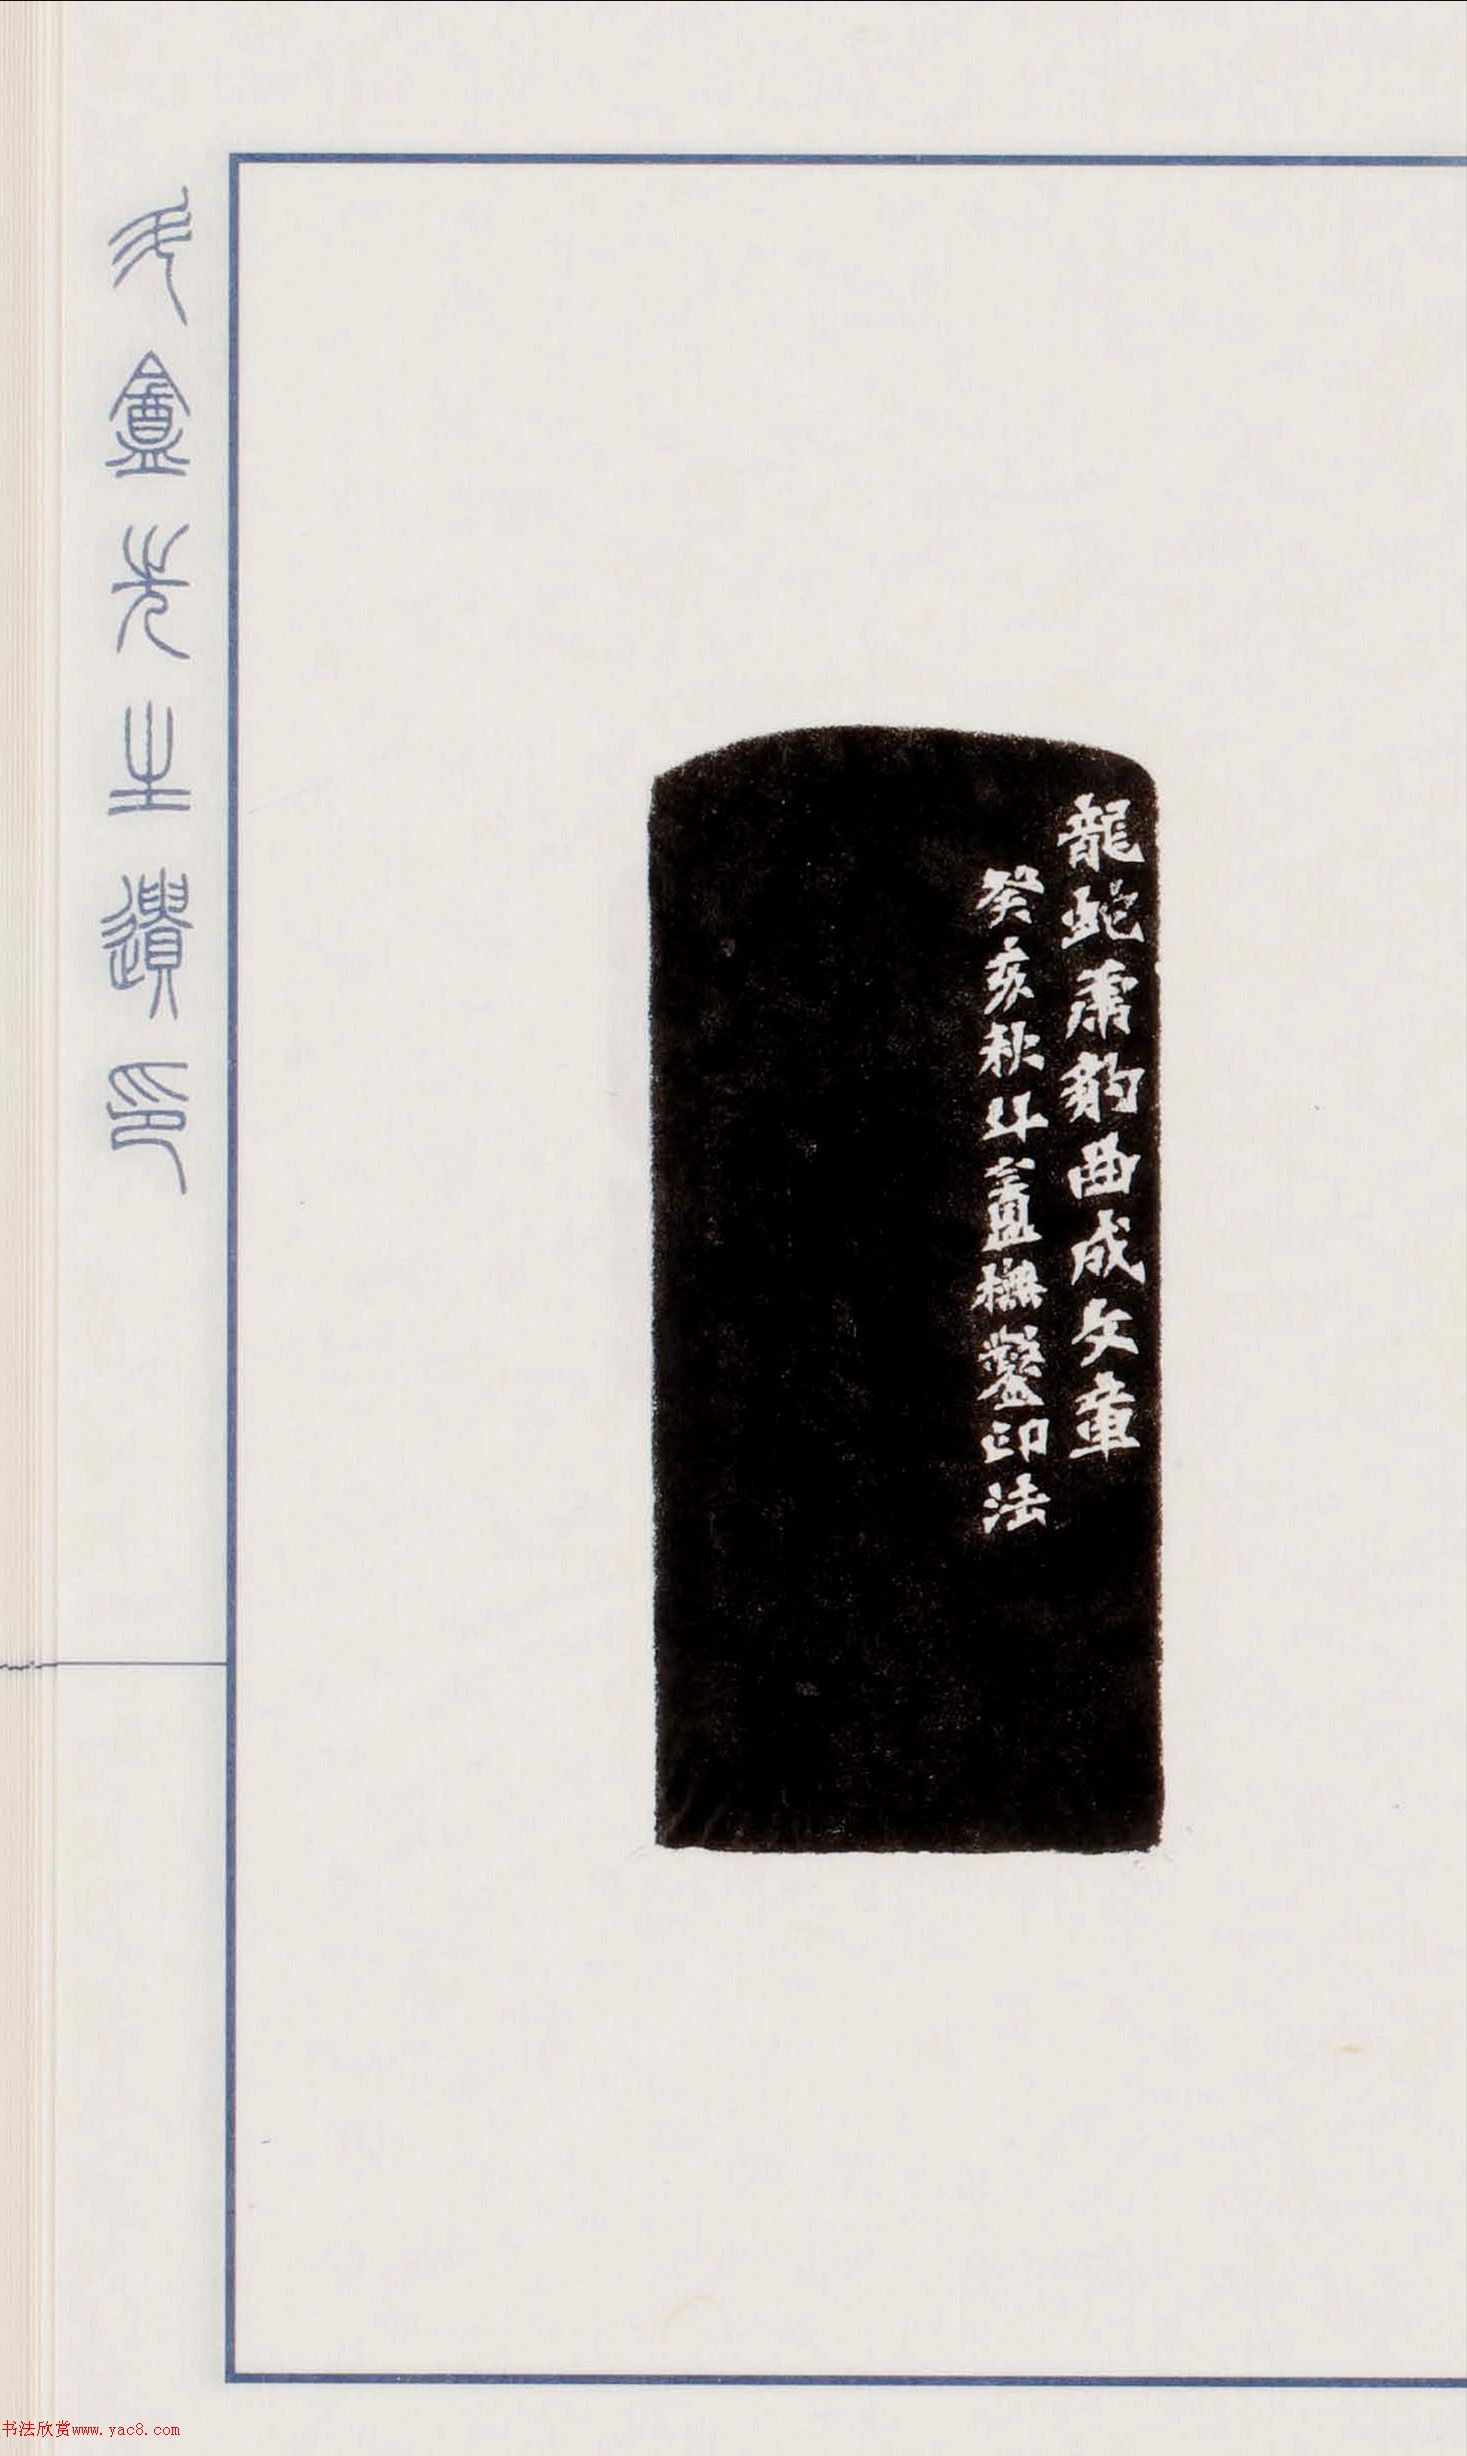 龍蛇虎豹曲成文章
癸亥秋斗盦橅鑿印法
斗盦先生遺印
书法欣赏www.yac8.com